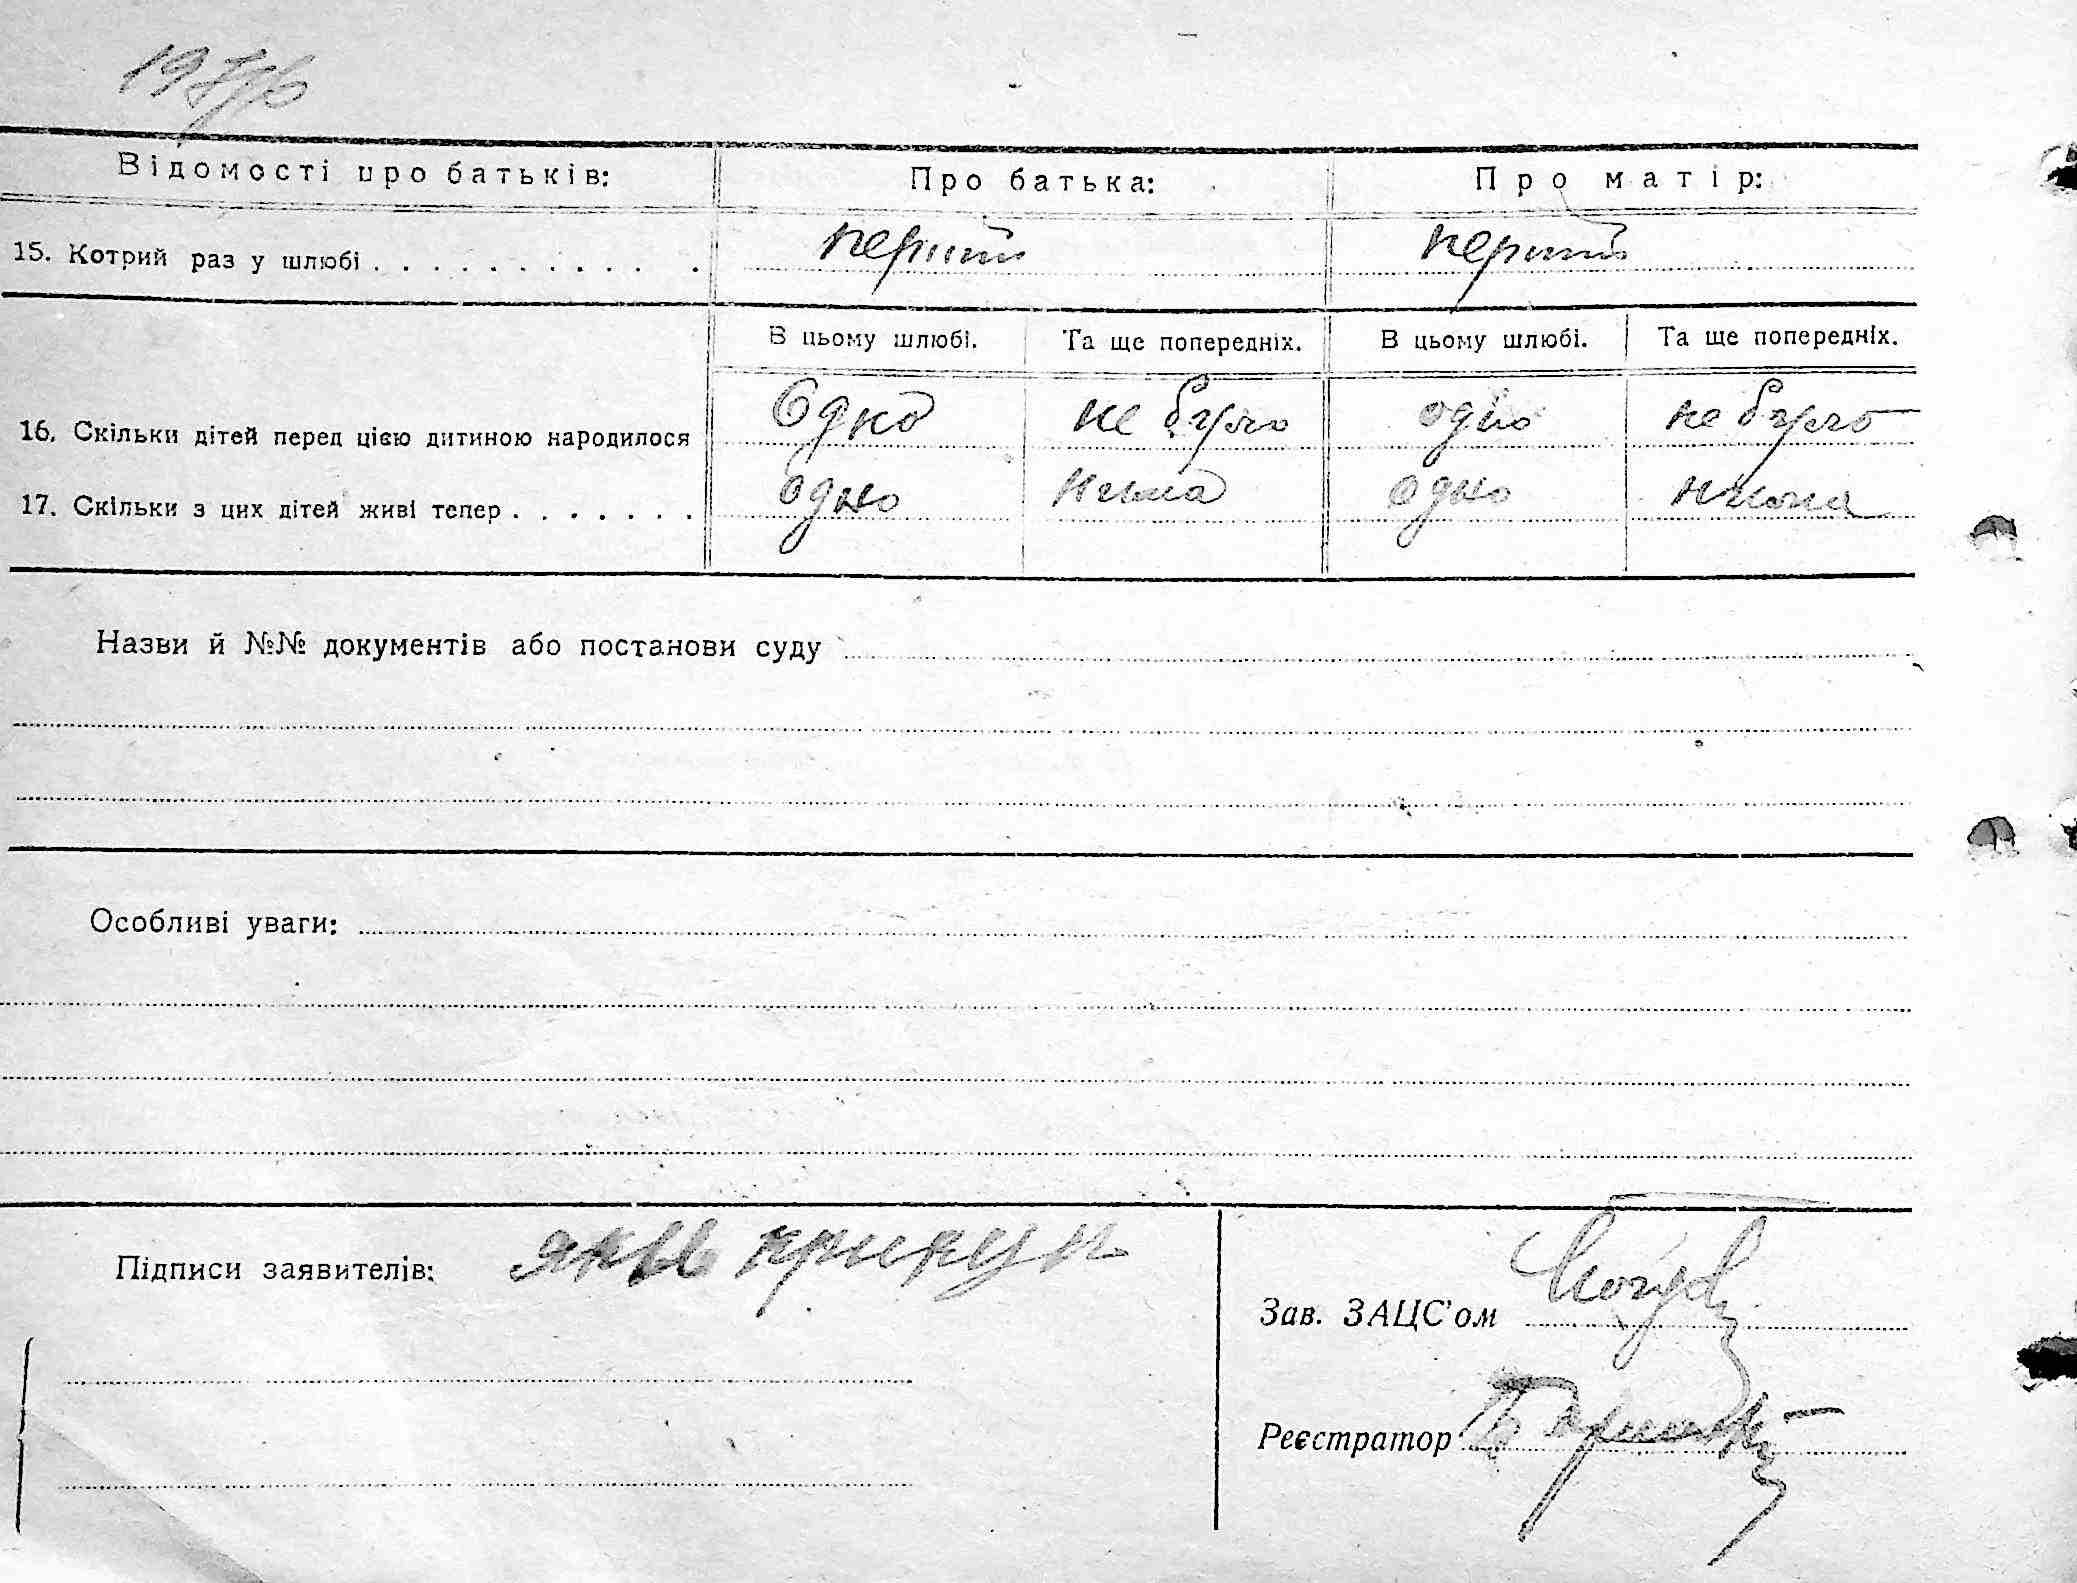 Відомості про батьків: Про батька: Про матір:
15. Котрий раз у шлюбі . . . . . . . . . . . перший перший
В цьому шлюбі. Та ще попередніх. В цьому шлюбі. Та ще попередніх.
16. Скільки дітей перед цією дитиною народилося Одно не було одно не було
17. Скільки з цих дітей живі тепер . . . . . . . одно нема одно нема
Назви й №№ документів або постанови суду
Особливі уваги:
Підписи заявителів: крикун
Зав. ЗАЦС'ом
Реєстратор